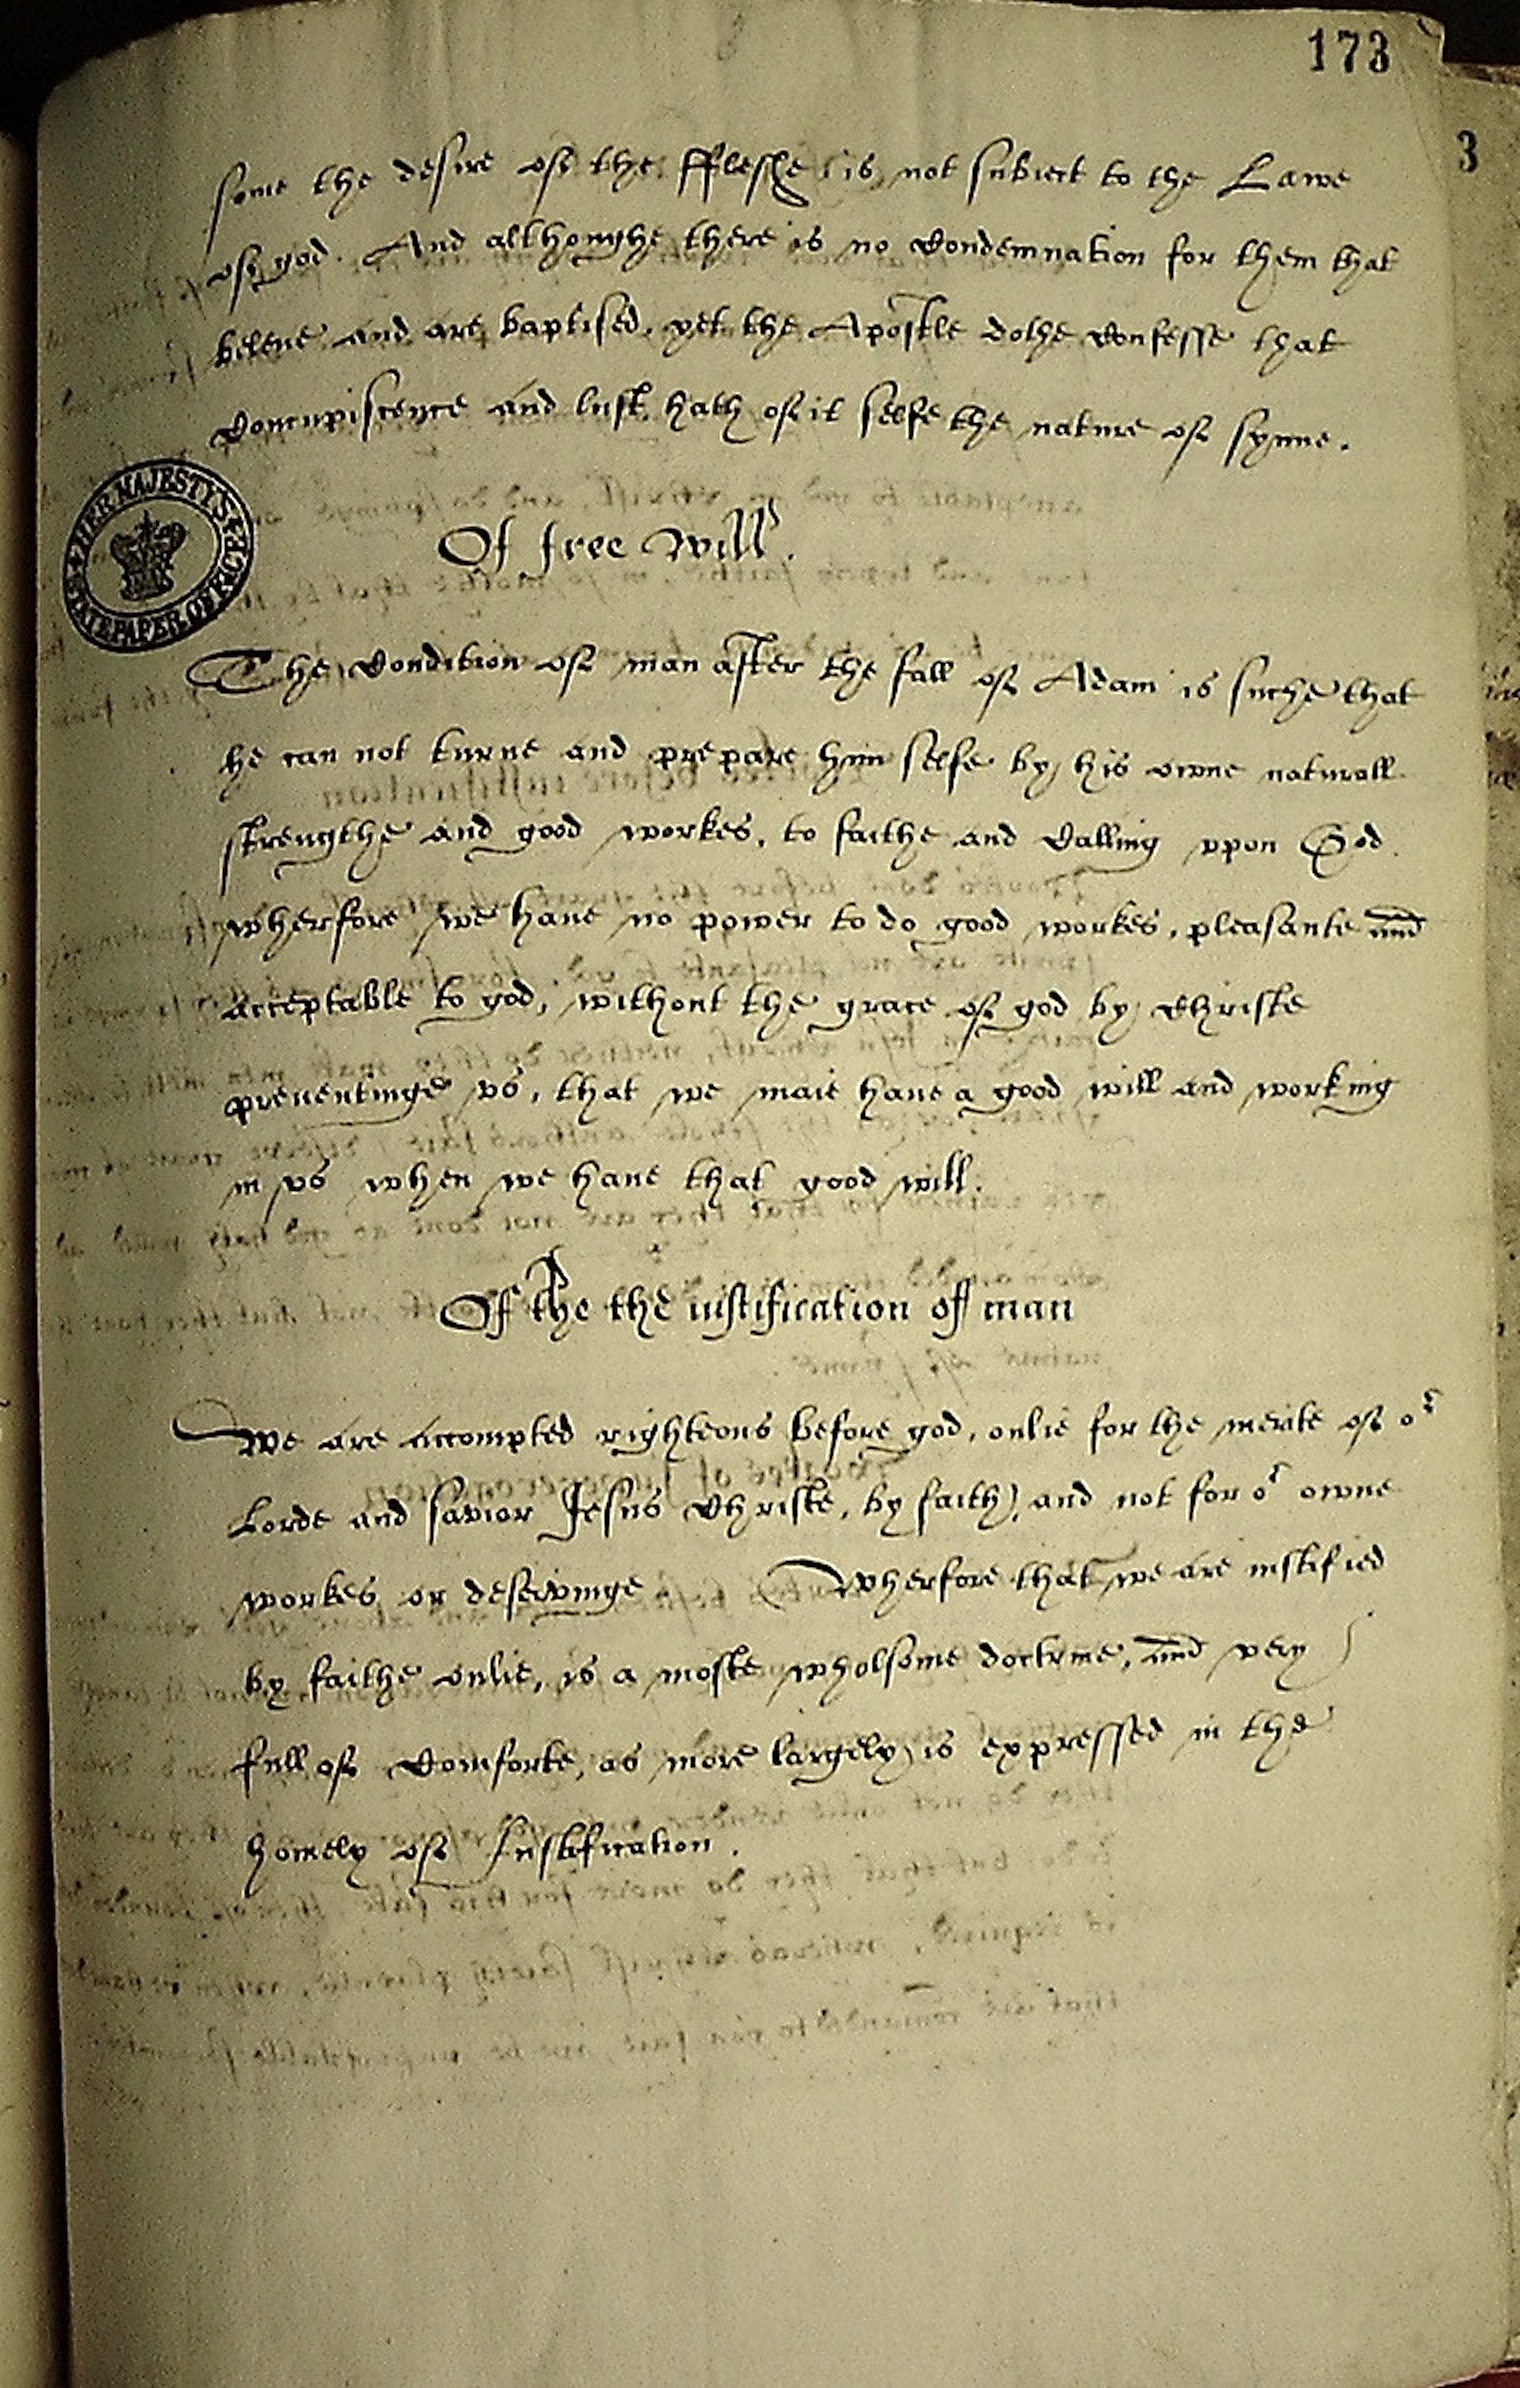 173
3
some the desire of the ffleshe is not subiect to the Lawe
of god. And althoughe there is no Condemnation for them that
beleue and are baptised, yet the Apostle dothe Confesse that
Concupiscence and lust hath of it selfe the nature of synne.
HER MAJESTY'S STATE PAPER OFFICE
Of free Will.
The Condition of man after the fall of Adam is suche that
he can not turne and prepare him selfe by his owne naturall
strengthe and good workes, to faithe and Calling vpon God.
wherfore we haue no power to do good workes, pleasante and
acceptable to god, without the grace of god by Christe
preuentinge vs, that we maie haue a good will and working
in vs when we haue that good will.
Of the the iustification off man
We are accompted righteous before god, onlie for the merite of oʳ
Lorde and savior Jesus Christe, by faith, and not for oʳ owne
workes or deservinge Wherfore that we are iustified
by faithe onlie, is a moste wholsome doctrine, and very
full of Comforte, as more largely is expressed in the
homely of Iustification.